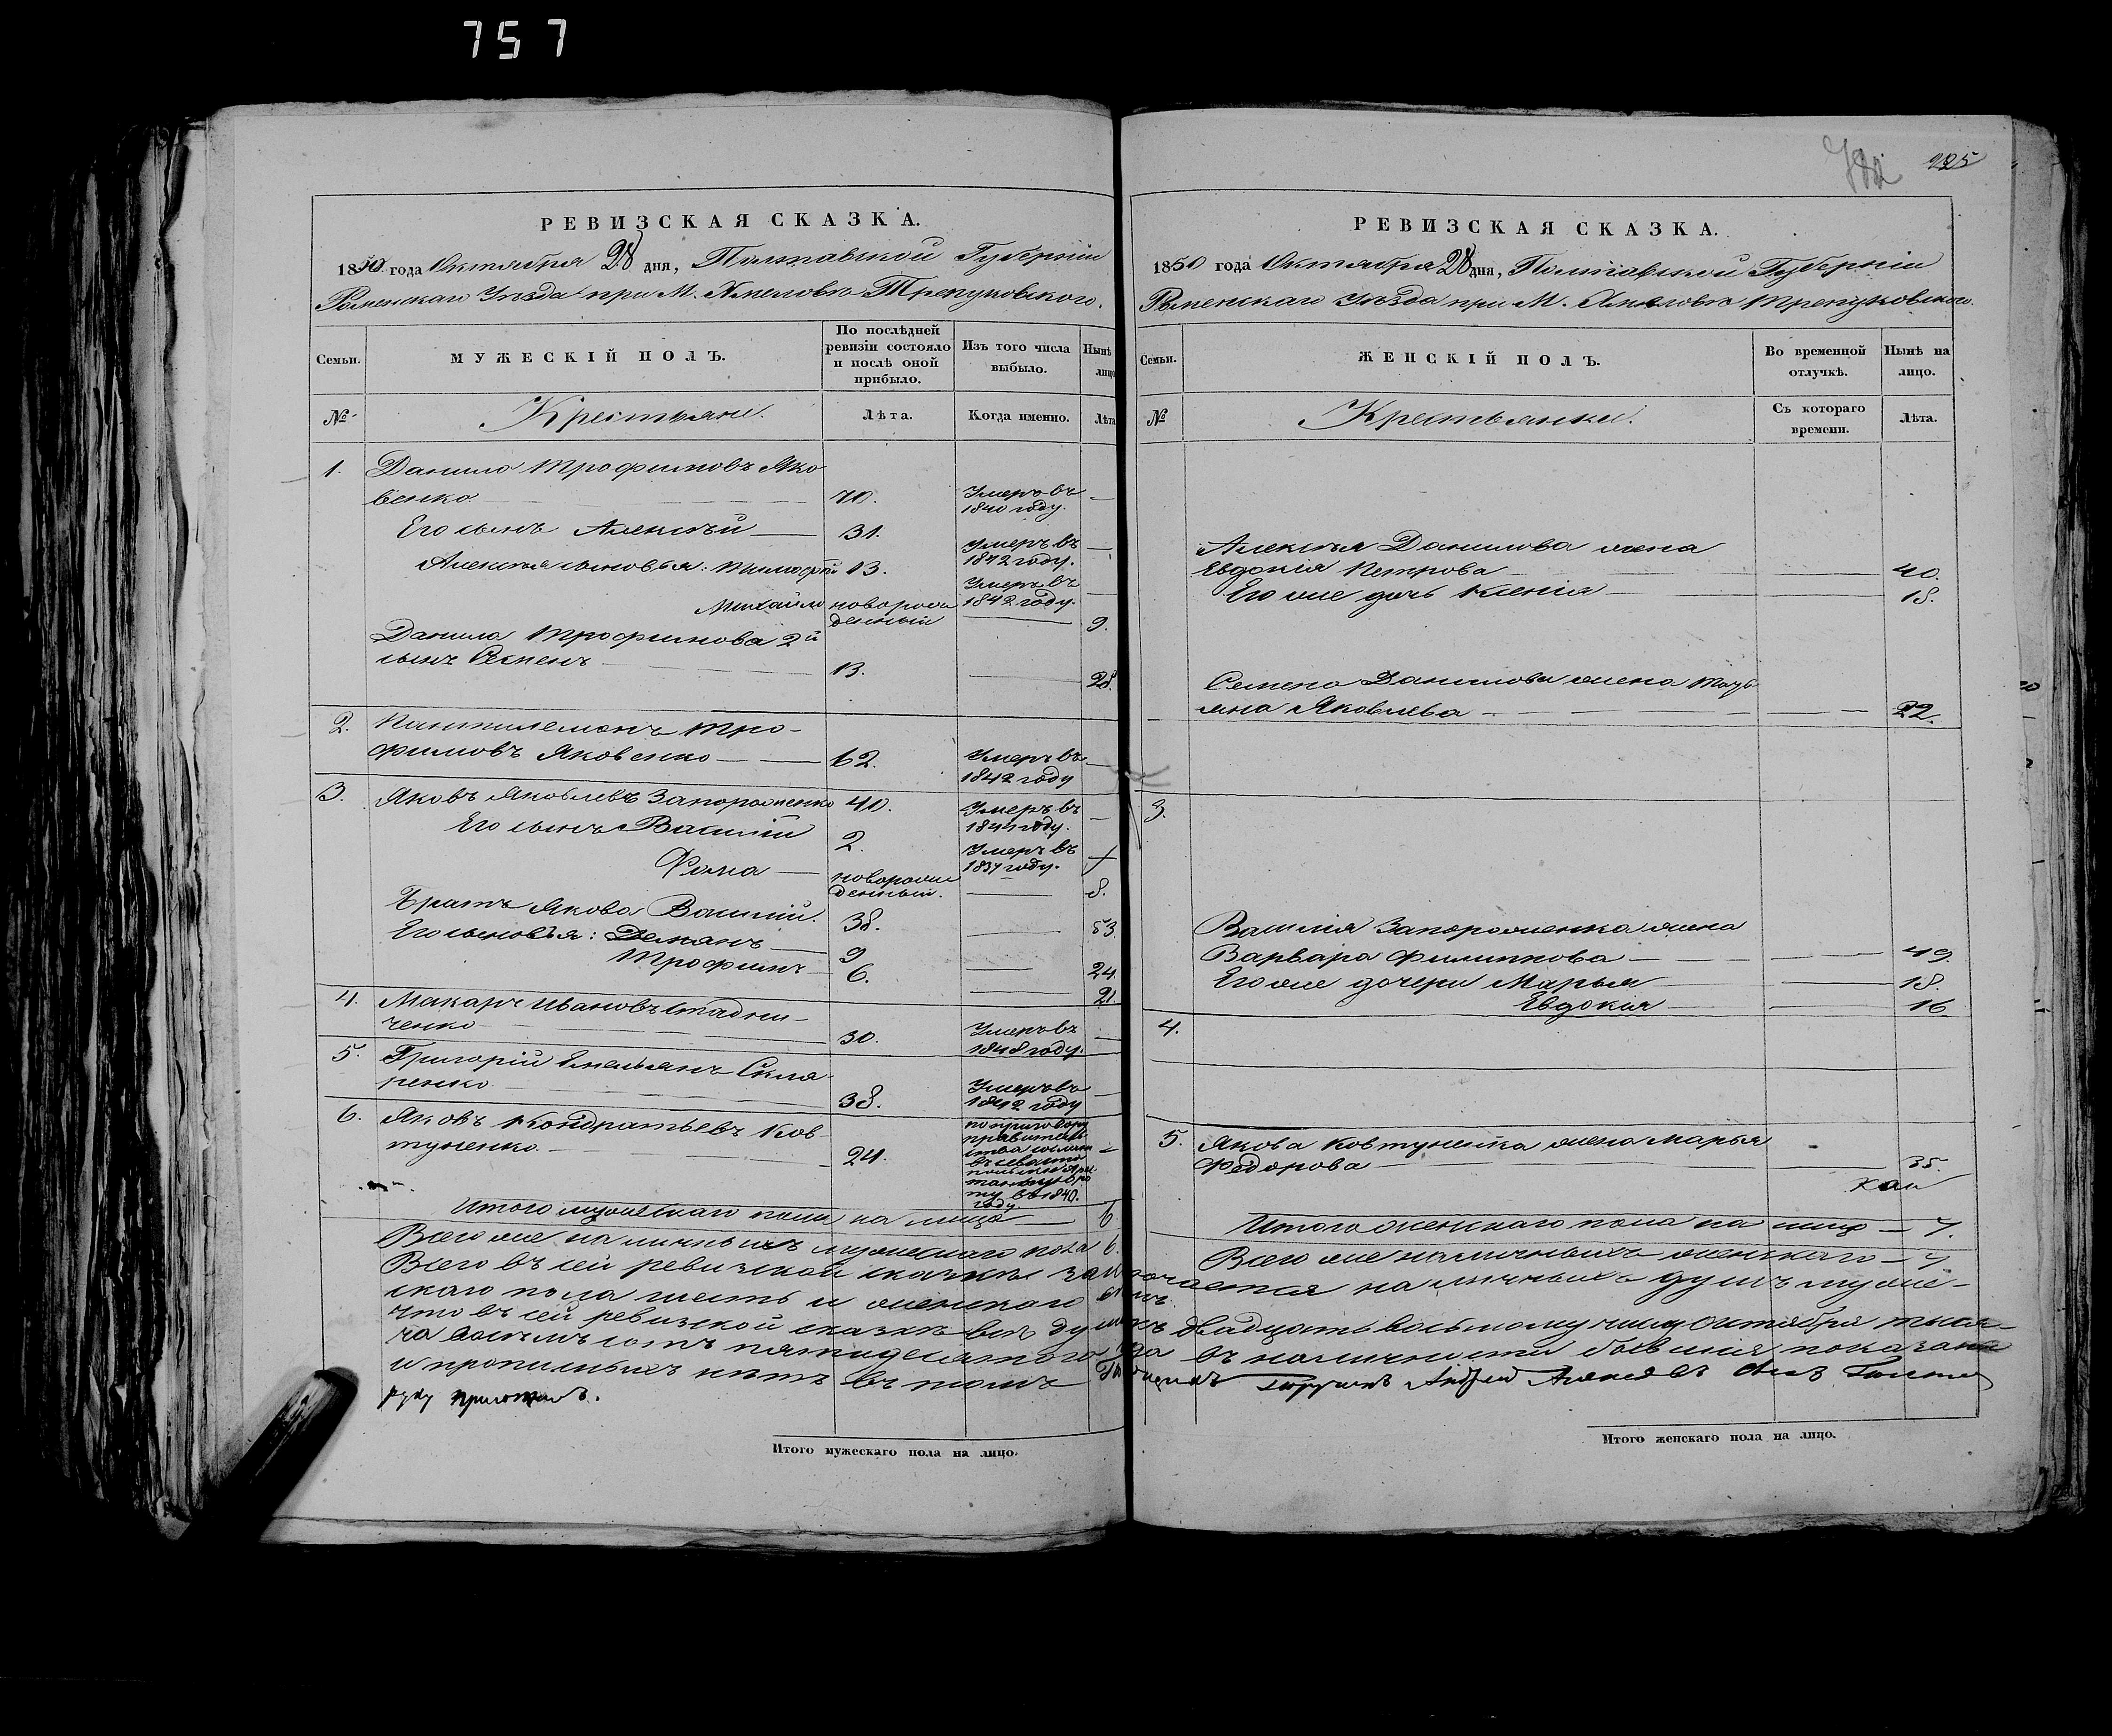 757
РЕВИЗСКАЯ СКАЗКА.
1850 года Октября 28 дня, Полтавской Губерніи
Роменскаго Уѣзда при М. Хмеловѣ Трепуковского.
Семьи.
МУЖЕСКІЙ ПОЛЪ.
По послѣдней ревизіи состояло и послѣ оной прибыло.
Изъ того числа выбыло.
Нынѣ лицо
№
Крестьяне.
Лѣта.
Когда именно.
Лѣта
1. Данило Трофимовъ Яко-
венко 70. Умеръ въ 1840 году. —
Его сынъ Алексѣй — 31. Умеръ въ 1842 году. —
Алексѣя сыновья: Тимофей 13. Умеръ въ 1842 году. —
Михайло новорожденный — 9.
Данила Трофимова 2й
сынъ Семенъ 13. — 28.
2. Пантилемонъ Тро-
фимовъ Яковенко — 62. Умеръ въ 1842 году —
3. Яковъ Яковлевъ Запороженко 40. Умеръ въ 1844 году. —
Его сынъ Василій 2. Умеръ въ 1837 году. —
Фома — новорожденный. — 8.
Братъ Якова Василій. 38. — 53.
Его сыновья: Демянъ — 9 — 24.
Трофимъ — 6. — 21.
4. Макаръ Ивановъ Стадни-
ченко 30. Умеръ въ 1848 году. —
5. Григорій Емельянъ Скля-
ренко 38. Умеръ въ 1842 году —
6. Яковъ Кондратьевъ Ков-
туненко. 24. по приговору правительства сосланъ въ севастопольскую арестанскую роту въ 1840. году —
Итого мужескаго пола на лицо — 6
Всего же наличныхъ мужескаго пола 6.
782
225
РЕВИЗСКАЯ СКАЗКА.
1850 года Октября 28 дня, Полтавской Губерніи
Роменскаго Уѣзда при М. Хмѣловѣ Трепуковского.
Семьи.
ЖЕНСКІЙ ПОЛЪ.
Во временной отлучкѣ.
Нынѣ на лицо.
№
Крестьянки.
Съ котораго времени.
Лѣта.
Алексѣя Данилова жена
Евдокія Петрова — 40.
Его же дочь Ксенія — 18.
Семена Данилова жена Тать-
яна Яковлева — 22.
3.
Василія Запороженка жена
Варвара Филипова — 49.
Его же дочери Марья — 18.
Евдокія — 16.
4.
5. Якова Ковтуненка жена Марья
Федорова — 35.
Итого женскаго пола на лицо — 7.
Всего же наличныхъ женскаго — 7
Всего въ сей ревизской сказкѣ заключается наличныхъ душъ муже-
скаго пола шесть и женскаго семь
что въ сей ревизской сказкѣ всѣ душъ двадцать восьмому числу Октября тыся-
ча восемъ сотъ пятидесятого года въ наличности бывшія показаны
и прописныхъ нѣтъ въ томъ Андрей Алексѣевъ
руку приложилъ.
Итого мужескаго пола на лицо.
Итого женскаго пола на лицо.